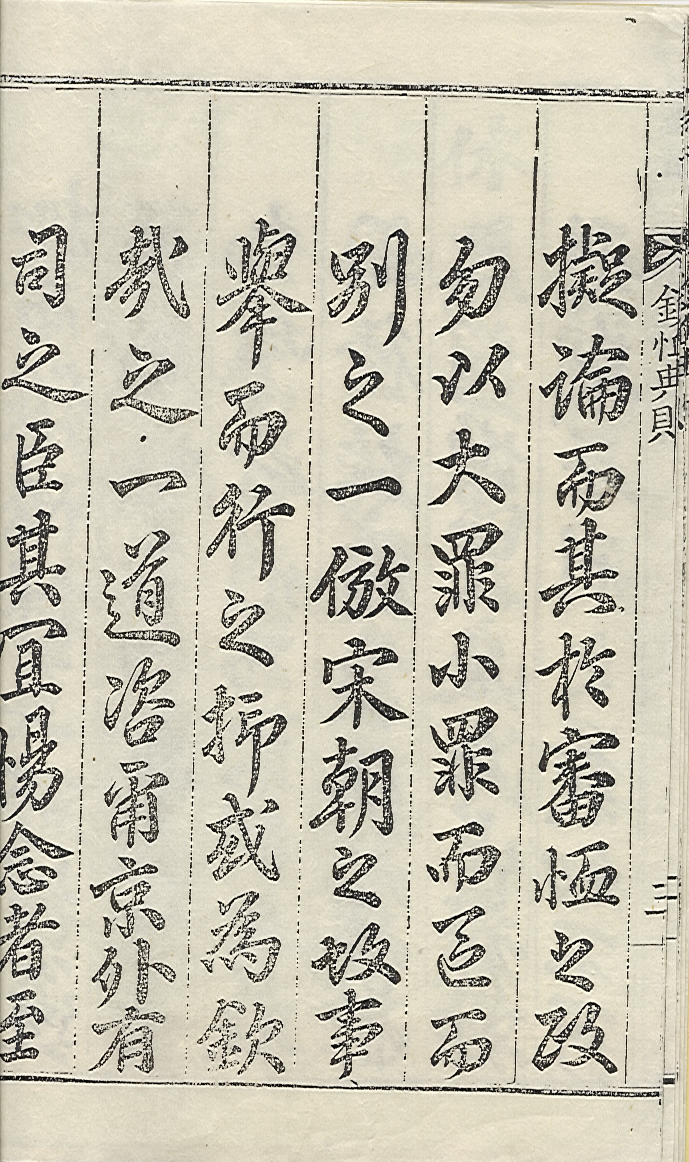 擬論而其於審恤之政
勿以大罪小罪而區而
別之一倣宋朝之故事
擧而行之抑或為欽
哉之一道咨爾京外有
司之臣其宜惕念者至
欽恤典則
二